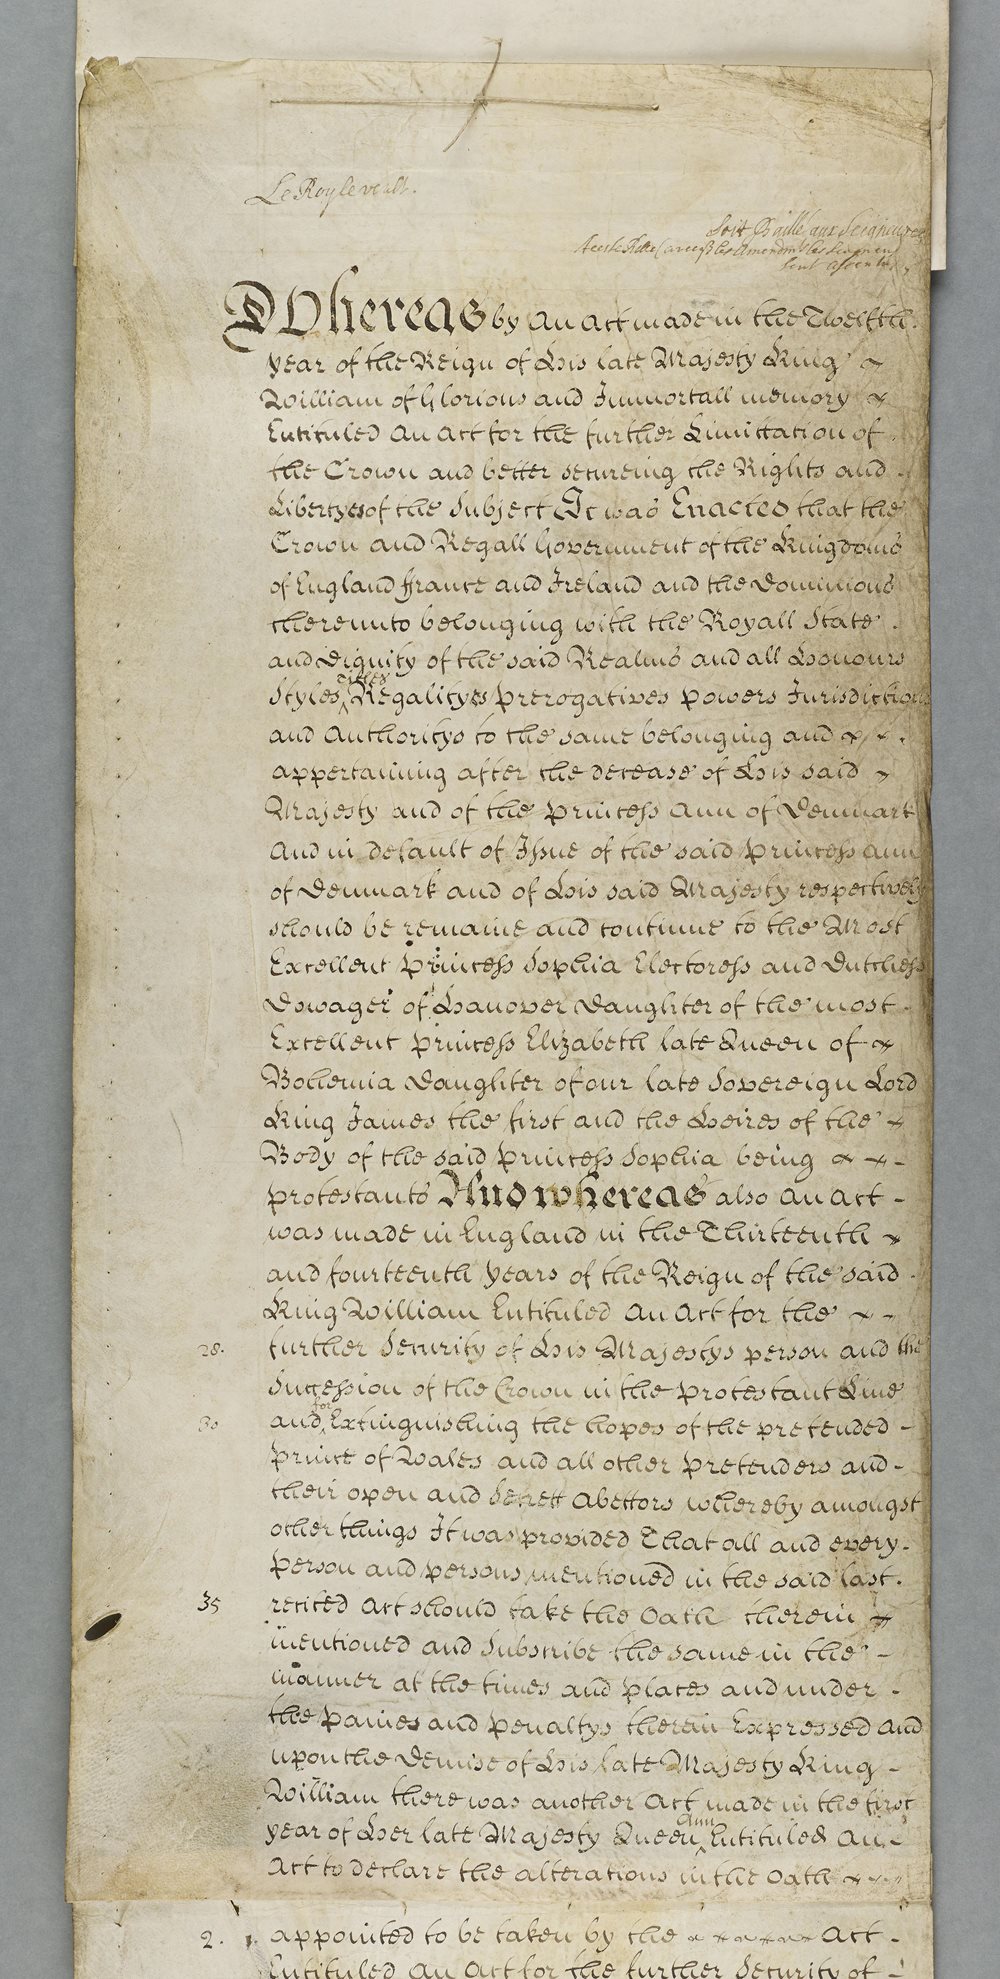 Le Roy le veult.
Soit Baillé aux Seigneurs
A ceste Bille avecque les Amendmts les Seigneurs
sont assentus
Whereas by An Act made in the Twelfth
year of the Reign of His late Majesty King
William of Glorious and Immortall memory
Entituled An Act for the further Limittation of
the Crown and better secureing the Rights and
Libertyes of the Subject It was Enacted that the
Crown and Regall Government of the Kingdoms
of England ffrance and Ireland and the Dominions
thereunto belonging with the Royall State
and Dignity of the said Realms and all Honours
Styles Titles Regalityes prerogatives powers Jurisdictions
and Authoritys to the same belonging and
appertaining after the decease of His said
Majesty and of the Princess Ann of Denmark
And in default of Issue of the said Princess Ann
of Denmark and of His said Majesty respectively
should be remaine and continue to the Most
Excellent Princess Sophia Electoress and Dutchess
Dowager of Hanover Daughter of the most
Excellent Princess Elizabeth late Queen of
Bohemia Daughter of our late Sovereign Lord
King James the first and the Heires of the
Body of the said Princess Sophia being
protestants And whereas also An Act
was made in England in the Thirteenth
and fourteenth years of the Reign of the said
King William Entituled An Act for the
28. further Security of His Majestys person and the
Succession of the Crown in the Protestant Line
30 and for Extinguishing the hopes of the pretended
Prince of Wales and all other Pretenders and
their open and Secrett Abettors whereby amongst
other things It was provided That all and every
person and persons mentioned in the said last
35 recited Act should take the Oath therein
mentioned and Subscribe the same in the
manner at the times and places and under
the Paines and Penaltys therein Expressed And
upon the Demise of His late Majesty King
William there was another Act made in the first
year of Her late Majesty Queen Ann Entituled An
Act to declare the alterations in the Oath
2. appointed to be taken by the Act
Entituled An Act for the further Security of